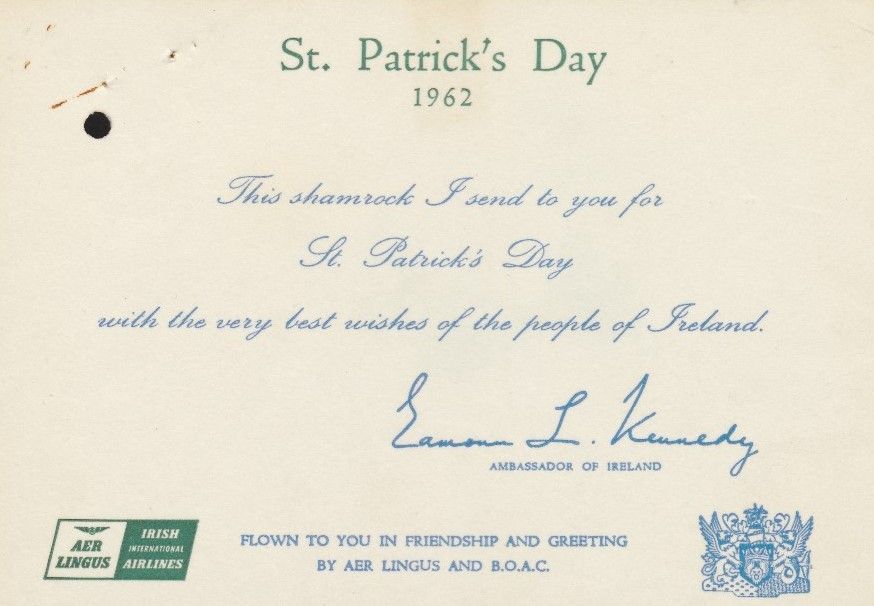 St. Patrick's Day
1962
This shamrock I send to you for
St. Patrick's Day
with the very best wishes of the people of Ireland.
Eamonn L. Kennedy
AMBASSADOR OF IRELAND
AER
LINGUS
IRISH
INTERNATIONAL
AIRLINES
FLOWN TO YOU IN FRIENDSHIP AND GREETING
BY AER LINGUS AND B.O.A.C.